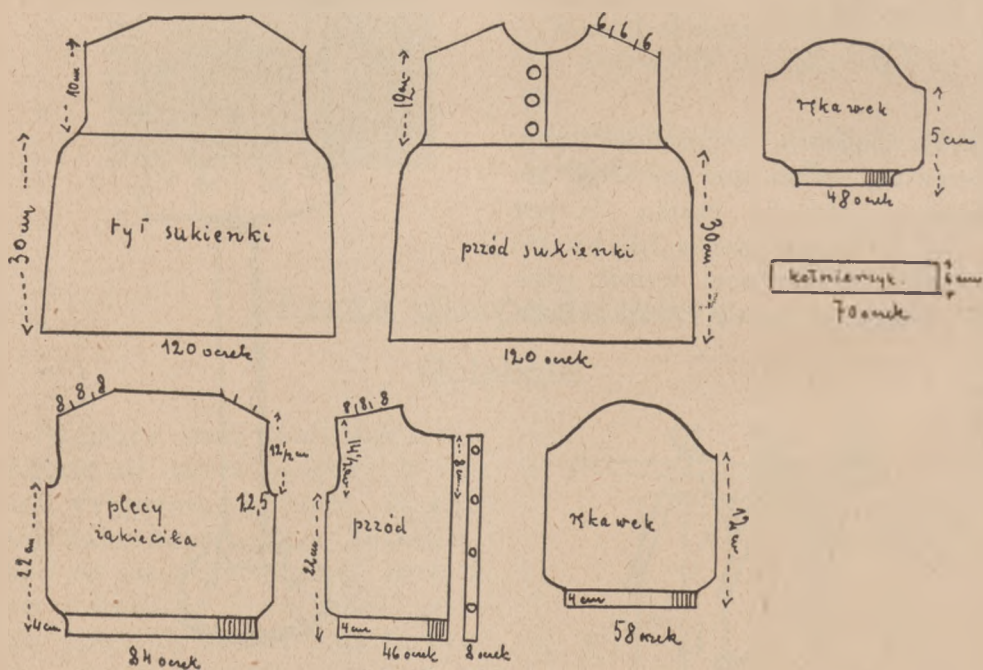 10 cm
30 cm
tył sukienki
120 oczek
6 6 6
12 cm
30 cm
przód sukienki
120 oczek
rękawek
5 cm
48 oczek
kołnierzyk.
6 cm
70 oczek
8 8 8
12 1/2 cm
12,5
plecy
żakiecika
22 cm
4 cm
84 oczek
8 8 8
14 1/2 cm
8 cm
przód
22 cm
4 cm
46 oczek
8 oczek
rękawek
12 cm
4 cm
58 oczek